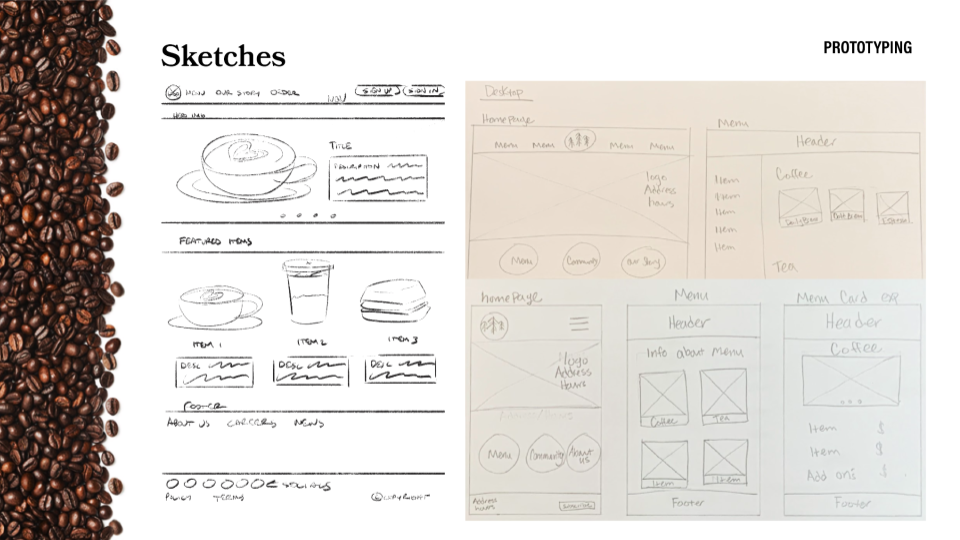 Sketches
PROTOTYPING
MENU OUR STORY ORDER
NAV
SIGN UP
SIGN IN
HERO IMG
TITLE
DESCRIPTION
FEATURED ITEMS
ITEM 1
ITEM 2
ITEM 3
DESC
DESC
DESC
FOOTER
ABOUT US CAREERS NEWS
SOCIALS
POLICY TERMS
COPYRIGHT
Desktop
Homepage
Menu Menu Menu Menu
logo
Address
hours
Menu
Community
Our Story
Menu
Header
Item
Item
Item
Item
Item
Coffee
Tea
homepage
logo
Address
Hours
Menu
Community
About
us
Address
hours
Menu
Header
Info about Menu
Coffee
Tea
Item
Item
Footer
Menu Card ex
Header
Coffee
Item $
Item $
Add ons $
Footer